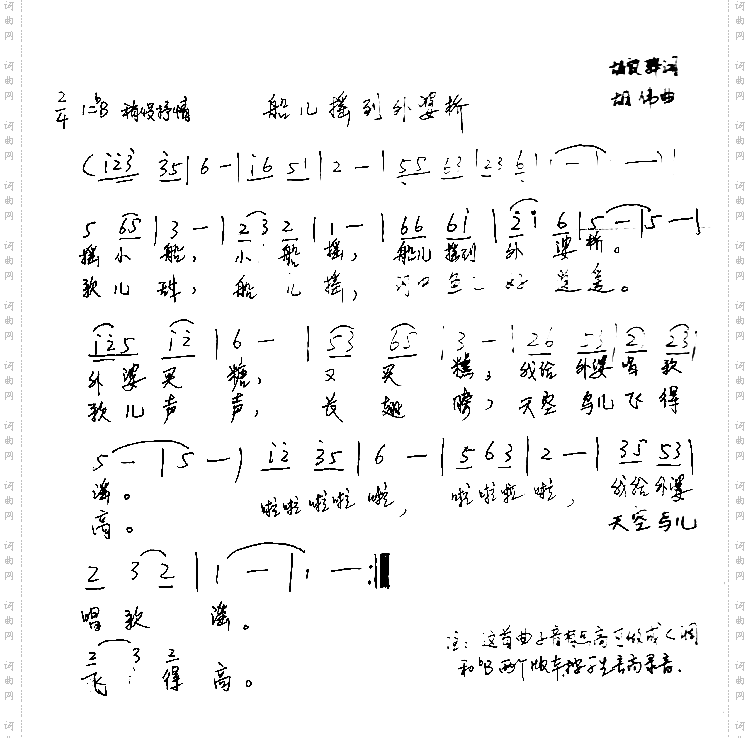 胡 词
2/4 1=♭B 稍慢抒情 船儿摇到外婆桥
胡伟曲
(i23 35|6 -|i6 5i|2 -|55 63|23 6|1 -|1 -)|
5 65|3 -|23 2|1 -|66 6i|2i 6|5 -|5 -|
摇小船，小船摇，船儿摇到外婆桥。
歌儿 ，船儿摇，河 鱼 好 。
i25 i2|6 -|53 65|3 -|26 53|2 23|
外婆买糖，又买糕，我给外婆唱歌
歌儿声声，长翅膀，天空鸟儿飞得
5 -|5 -|i2 35|6 -|5 63|2 -|35 53|
谣。 啦啦啦啦啦，啦啦啦啦，我给外婆
高。 天空鸟儿
2 32|1 -|1 -:‖
唱歌谣。
2 3 2
飞得高。
注：这首曲子音 高 可做成C调
和♭B两个版本 学生 高录音.
词曲网